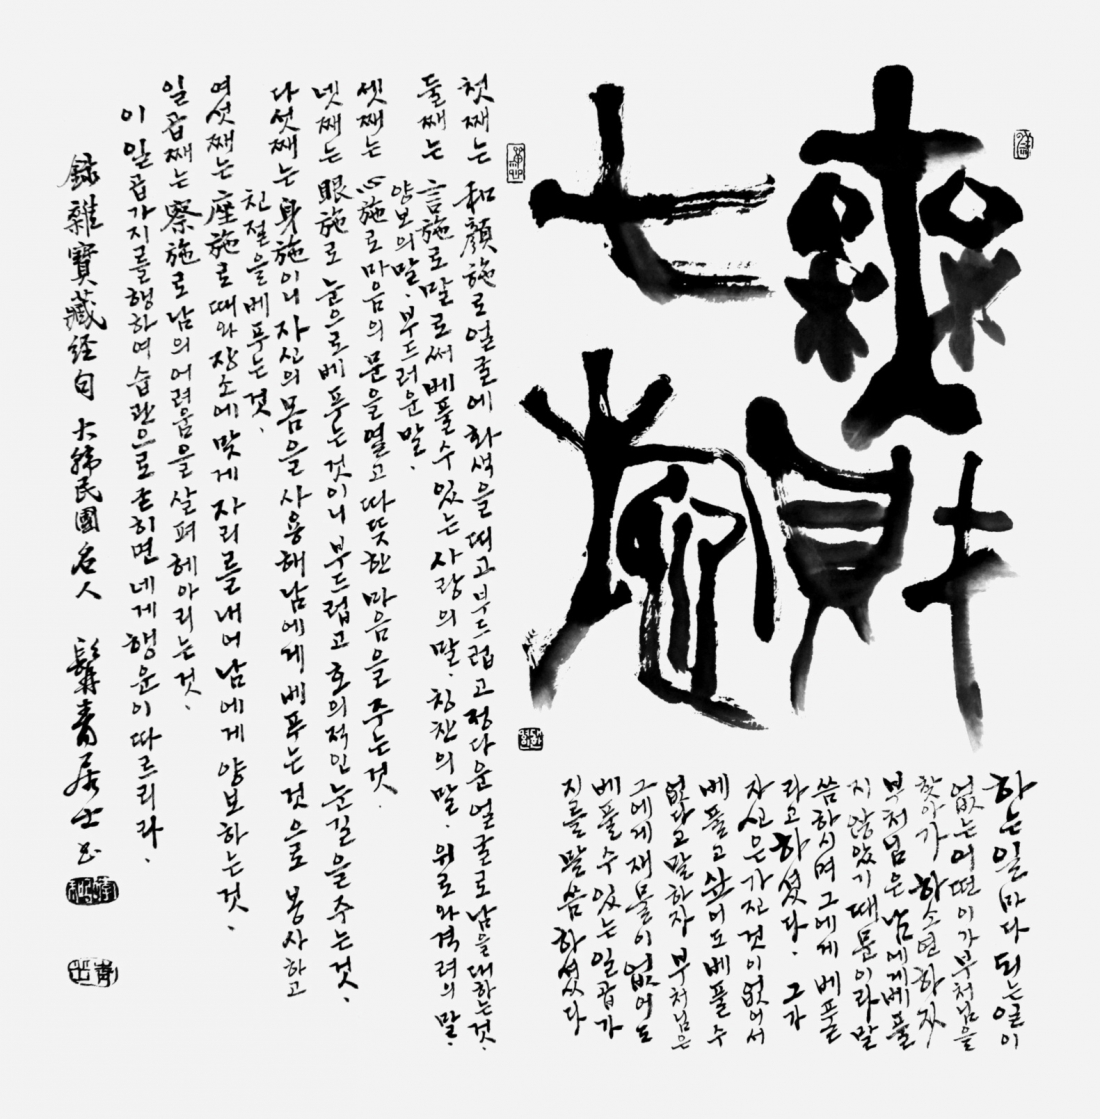 無財
七施
하는일마다 되는일이
없는어떤이가부처님을
찾아가 하소연하자
부처님은 남에게베풀
지않았기때문이라말
씀하시며 그에게 베풀
라고하셨다. 그가
자신은가진것이없어서
베풀고싶어도베풀수
없다고말하자 부처님은
그에게재물이없어도
베풀수있는일곱가
지를말씀하셨다
첫째는 和顔施로 얼굴에 화색을 띠고 부드럽고 정다운 얼굴로 남을 대하는것.
둘째는 言施로 말로써 베풀수 있는 사랑의 말. 칭찬의 말. 위로와 격려의 말.
양보의 말. 부드러운 말.
셋째는 心施로 마음의 문을 열고 따뜻한 마음을 주는것.
넷째는 眼施로 눈으로 베푸는것이니 부드럽고 호의적인 눈길을 주는것.
다섯째는 身施이니 자신의 몸을 사용해 남에게 베푸는것으로 봉사하고
친절을 베푸는 것.
여섯째는 座施로 때와 장소에 맞게 자리를 내어 남에게 양보하는것.
일곱째는 察施로 남의 어려움을 살펴 헤아리는것.
이 일곱가지를 행하여 습관으로 굳히면 네게 행운이 따르리라.
錄雜寶藏経句 大韓民國名人 靑居士